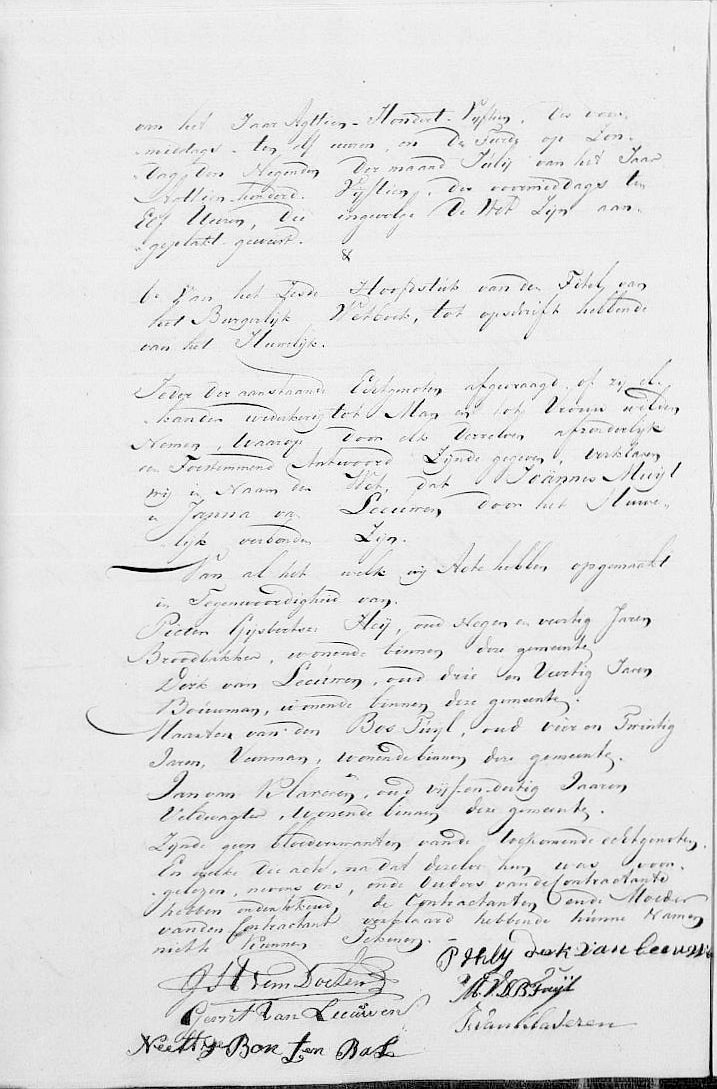 van het Jaar Agttien-Hondert-Vyftien, des voor-
middags ten elf uuren, en de Twede op Zon-
dag den Negenden der maand Julij van het Jaar
Agttien hondert Vyftien, des voormiddags ten
Elf Uuren, die ingevolge de Wet Zijn aan-
geplakt geweest.
&
Van het Zesde Hoofdstuk van den Titel van
het Burgerlijk Wetboek, tot opschrift hebbende
van het Huwelijk.
Ieder der aanstaande Echtgenoten afgevraagd of zij el-
kander wederkerig tot Man en tot Vrouw wilden
Nemen, waarop door elk derzelven afzonderlijk
een Toestemmend Antwoord Zijnde gegeven, verklaren
wij in Naam der Wet, dat Joännes Muijl
en Janna van Leeuwen door het Huwe-
lijk verbonden Zijn.
Van al het welk wij Acte hebben opgemaakt
in Tegenwoordigheid van.
Pieter Gijsbertse Heij, oud Negen en veertig Jaren
Broodbakker, wonende binnen deze gemeente
Derk van Leeuwen, oud drie en Veertig Jaren
Bouwman, wonende binnen deze gemeente.
Maarten van den Bos Tuyl, oud vier en Twintig
Jaren, Veerman, wonende binnen deze gemeente.
Jan van Klaveren, oud vijf en dertig Jaaren
Veldwagter, wonende binnen deze gemeente.
Zijnde geen bloedverwanten van de toekomende echtgenoten.
En welke deze acte, na dat dezelve hun was voor-
gelezen, nevens ons, ende Ouders van de Contractante
hebben ondertekend, de Contractanten ende Moeder
van den Contractant verklaard hebbende hunne Namen
niet te kunnen Tekenen.
P Heij derk van leeuwen
M. V. D. B Tuijl
Gerrit Van Leeuwen
J. van Klaveren
Neeltje Bon ten Bal